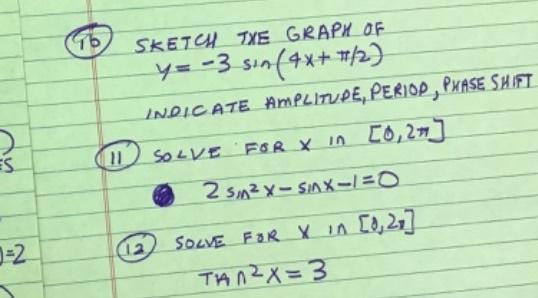 10 SKETCH THE GRAPH OF
y = -3 sin(4x + π/2)
INDICATE AMPLITUDE, PERIOD, PHASE SHIFT
11 SOLVE FOR X in [0, 2π]
2 sin²x - sinx - 1 = 0
12 SOLVE FOR X in [0, 2π]
TAN²X = 3
ES
)=2